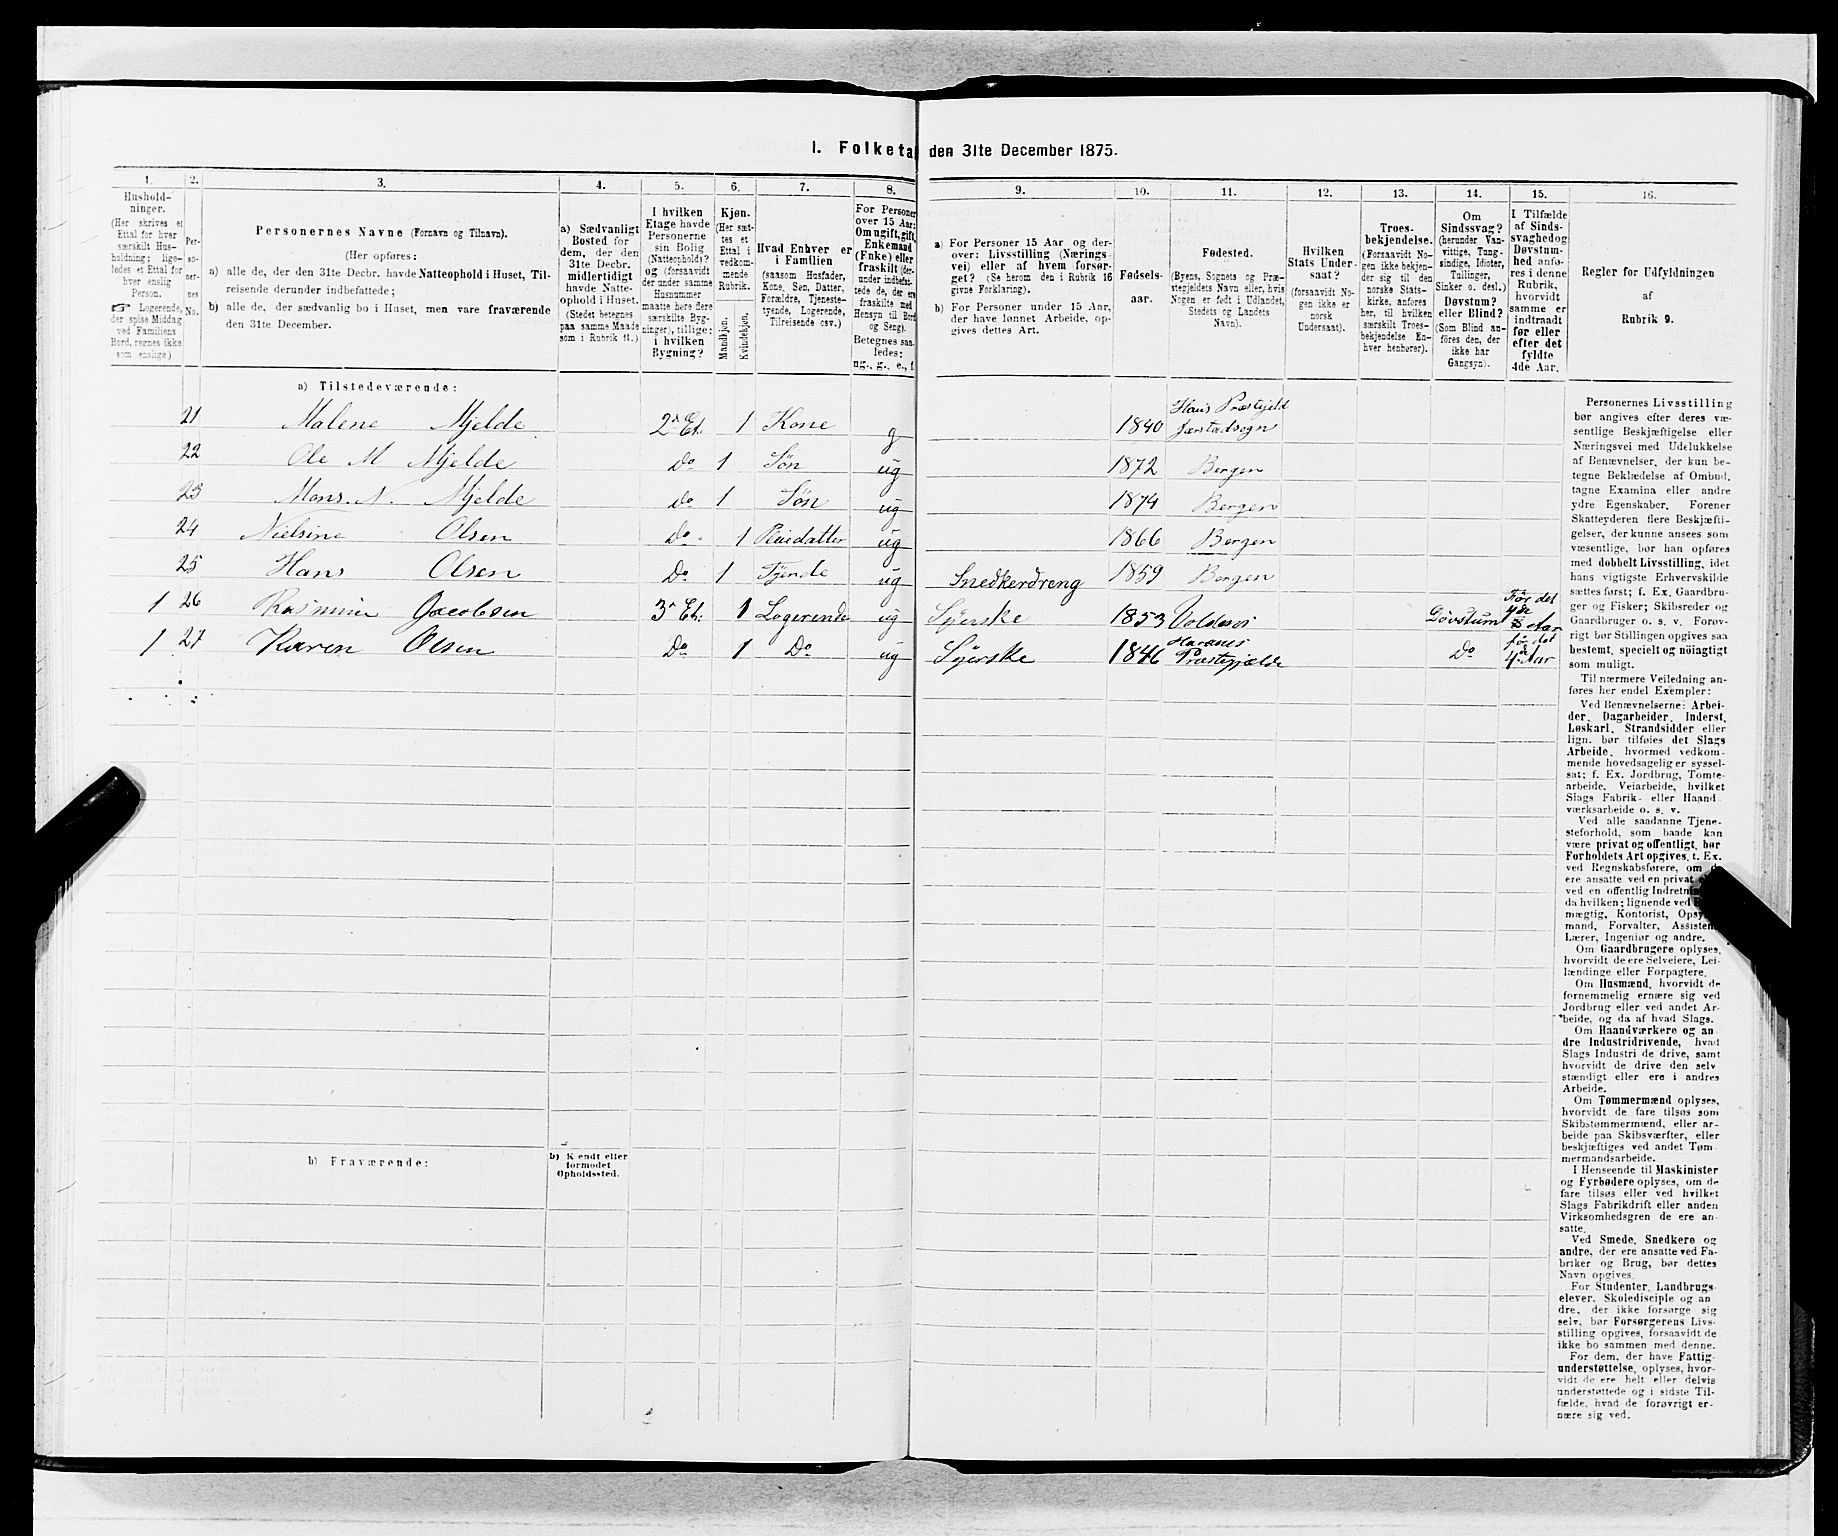 I. Folketal den 31te December 1875.
1. 2. 3. 4. 5. 6. 7. 8. 9. 10. 11. 12. 13. 14. 15. 16.
Hushold-
ninger.
(Her skrives et
Ettal for hver
særskilt Hus-
holdning; lige-
ledes et Ettal for
hver enslig
Person.
☞ Logerende,
der spise Middag
ved Familiens
Bord, regnes ikke
som enslige)
Per-
so-
ner-
nes
No.
Personernes Navne (Fornavn og Tilnavn).
(Her opføres:
a) alle de, der den 31te Decbr. havde Natteophold i Huset, Til-
reisende derunder indbefattede;
b) alle de, der sædvanlig bo i Huset, men vare fraværende
den 31te December.
a) Sædvanligt
Bosted for
dem, der den
31te Decbr.
midlertidigt
havde Natte-
ophold i Huset.
(Stedet betegnes
paa samme Maade
som i Rubrik 11.)
I hvilken
Etage havde
Personerne
sin Bolig
(Natteophold)?
og (forsaavidt
der under samme
Husnummer
maatte høre flere
særskilte Byg-
ninger), tillige:
i hvilken
Bygning?
Kjøn.
(Her sæt-
tes et
Ettal i
vedkom-
mende
Rubrik.
Mandkjøn.
Kvindekjøn.
Hvad Enhver er
i Familien
(saasom Husfader,
Kone, Søn, Datter,
Forældre, Tjeneste-
tyende, Logerende,
Tilreisende osv.)
For Personer
over 15 Aar:
Om ugift, gift,
Enkemand
(Enke) eller
fraskilt (der-
under indbefat-
tede de, der ere
fraskilte med
Hensyn til Bord
og Seng).
Betegnes saa-
ledes:
ug., g., e., f.
a) For Personer 15 Aar og der-
over: Livsstilling (Nærings-
vei) eller af hvem forsør-
get? (Se herom den i Rubrik 16
givne Forklaring).
b) For Personer under 15 Aar,
der have lønnet Arbeide, op-
gives dettes Art.
Fødsels-
aar.
Fødested.
(Byens, Sognets og Præ-
stegjeldets Navn eller, hvis
Nogen er født i Udlandet,
Stedets og Landets
Navn).
Hvilken
Stats Under-
saat?
(forsaavidt No-
gen ikke er
norsk
Undersaat).
Troes-
bekjendelse.
(Forsaavidt No-
gen ikke bekjen-
der sig til den
norske Stats-
kirke, anføres
her, til hvilken
særskilt Troes-
bekjendelse En-
hver henhører).
Om
Sindssvag?
(herunder Van-
vittige, Tung-
sindige, Idioter,
Tullinger,
Sinker o. desl.)
Døvstum?
eller Blind?
(Som Blind an-
føres den, der
ikke har
Gangsyn).
I Tilfælde
af Sinds-
svaghed og
Døvstum-
hed anfø-
res i denne
Rubrik,
hvorvidt
samme er
indtraadt
før eller
efter det
fyldte
4de Aar.
Regler for Udfyldningen
af
Rubrik 9.
a) Tilstedeværende:
21 Malene Mjelde 2n Et. 1 Kone g 1840 Hans Præstejeld
sogn
22 Ole M Mjelde Do 1 Søn ug 1872 Bergen
23 Mons. N. Mjelde do 1 Søn ug 1874 Bergen
24 Nielsine Olsen Do 1 Pleiedatter ug 1866 Bergen
25 Hans Olsen Do 1 Tjende ug Snedkerdreng 1859 Bergen
1 26 Rasmine Jacobsen 3n Et. 1 Logerende ug Syerske 1853 Døvstum Før det
4de Aar
1 27 Karen Olsen Do 1 Do ug Syerske 1846 Harams
Præstegjælde Do før det
4d Aar
b) Fraværende:
b) Kjendt eller
formodet
Opholdssted.
Personernes Livsstilling
bør angives efter deres væ-
sentlige Beskjæftigelse eller
Næringsvei med Udelukkelse
af Benævnelser, der kun be-
tegne Beklædelse af Ombud,
tagne Examina eller andre
ydre Egenskaber. Forener
Skatteyderen flere Beskjæfti-
gelser, der kunne ansees som
væsentlige, bør han opføres
med dobbelt Livsstilling, idet
hans vigtigste Erhvervskilde
sættes først; f. Ex. Gaardbru-
ger og Fisker; Skibsreder og
Gaardbruger o. s. v. Forøv-
rigt bør Stillingen opgives saa
bestemt, specielt og nöiagtigt
som muligt.
Til nærmere Veiledning an-
føres her endel Exempler:
Ved Benævnelserne: Arbei-
der, Dagarbeider, Inderst,
Løskarl, Strandsidder eller
lign. bør tilføies det Slags
Arbeide, hvormed vedkom-
mende hovedsagelig er syssel-
sat; f. Ex. Jordbrug, Tomte-
arbeide, Veiarbeide, hvilket
Slags Fabrik- eller Haand-
værksarbeide o. s. v.
Ved alle saadanne Tjene-
steforhold, som baade kan
være privat og offentligt, bør
Forholdets Art opgives, t. Ex.
ved Regnskabsførere, om de
ere ansatte ved en privat eller
ved en offentlig Indretning, og
da hvilken; lignende ved Fuld-
mægtig, Kontorist, Opsyns-
mand, Forvalter, Assistent,
Lærer, Ingeniør og andre.
Om Gaardbrugere oplyses,
hvorvidt de ere Selveiere, Lei-
lændinge eller Forpagtere.
Om Husmænd, hvorvidt de
fornemmelig ernære sig ved
Jordbrug eller ved andet Ar-
beide, og da af hvad Slags.
Om Haandværkere og an-
dre Industridrivende, hvad
Slags Industri de drive, samt
hvorvidt de drive den selv-
stændigt eller ere i andres
Arbeide.
Om Tømmermænd oplyses,
hvorvidt de fare tilsøs som
Skibstømmermænd, eller ar-
beide paa Skibsværfter, eller
beskjæftiges ved andet Tøm-
mermandsarbeide.
I Henseende til Maskinister
og Fyrbødere oplyses, om de
fare tilsøs eller ved hvilket
Slags Fabrikdrift eller anden
Virksomhedsgren de ere an-
satte.
Ved Smede, Snedkere og
andre, der ere ansatte ved Fa-
briker og Brug, bør dettes
Navn opgives.
For Studenter, Landbrugs-
elever, Skoledisciple og an-
dre, der ikke forsørge sig
selv, bør Forsørgerens Livs-
stilling opgives, forsaavidt de
ikke bo sammen med denne.
For dem, der have Fattig-
understøttelse, oplyses, hvor-
vidt de ere helt eller delvis
understøttede og i sidste Til-
fælde, hvad de forøvrigt er-
nære sig ved.